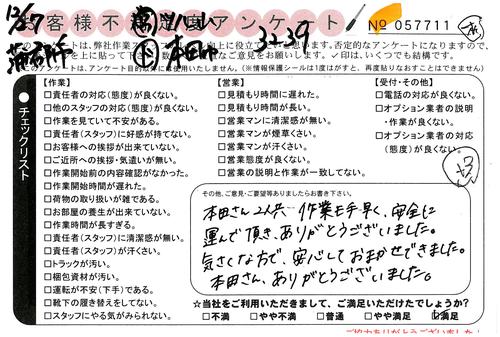 12/27
蒲郡市
お客様不満足度アンケート
本田
3239
No 057711
このアンケートは、弊社作業スタッフ
向上に役立て
思います。否定的なアンケートになりますので、
を上に貼って下
数
ご意見をお願いします。✓印は、いくつでも結構です。
このアンケートは、アンケート目的以外に使用いたしません。(※情報保護シールは1度はがすと、再度貼りなおすことはできません)
●チェックリスト
【作業】
□責任者の対応(態度)が良くない。
□他のスタッフの対応(態度)が良くない。
□作業を見ていて不安がある。
□責任者(スタッフ)に好感が持てない。
□お客様への挨拶が出来ていない。
□ご近所への挨拶・気遣いが無い。
□作業開始前の内容確認がなかった。
□作業開始時間が遅れた。
□荷物の取り扱いが雑である。
□お部屋の養生が出来ていない。
□作業時間が長すぎる。
□責任者(スタッフ)に清潔感が無い。
□責任者(スタッフ)が汗くさい。
□トラックが汚い。
□梱包資材が汚い。
□運転が不安(下手)である。
□靴下の履き替えをしてない。
□スタッフにやる気がみられない。
【営業】
□見積もり時間に遅れた。
□見積もり時間が長い。
□営業マンに清潔感が無い。
□営業マンが煙草くさい。
□営業マンが汗くさい。
□営業態度が良くない。
□営業の説明と作業が一致してない。
【受付・その他】
□電話の対応が良くない。
□オプション業者の説明
・作業が良くない。
□オプション業者の対応
(態度)が良くない。
+3
その他、ご意見・ご要望等ありましたらお書き下さい。
本田さん2人共 作業も手早く、安全に
運んで頂き、ありがとうございました。
気さくな方で、安心しておまかせできました。
本田さん、ありがとうございました。
☆当社をご利用いただきまして、ご満足いただけたでしょうか?
□不満 □やや不満 □普通 □やや満足 ☑満足
ご協力ありがとうございました!